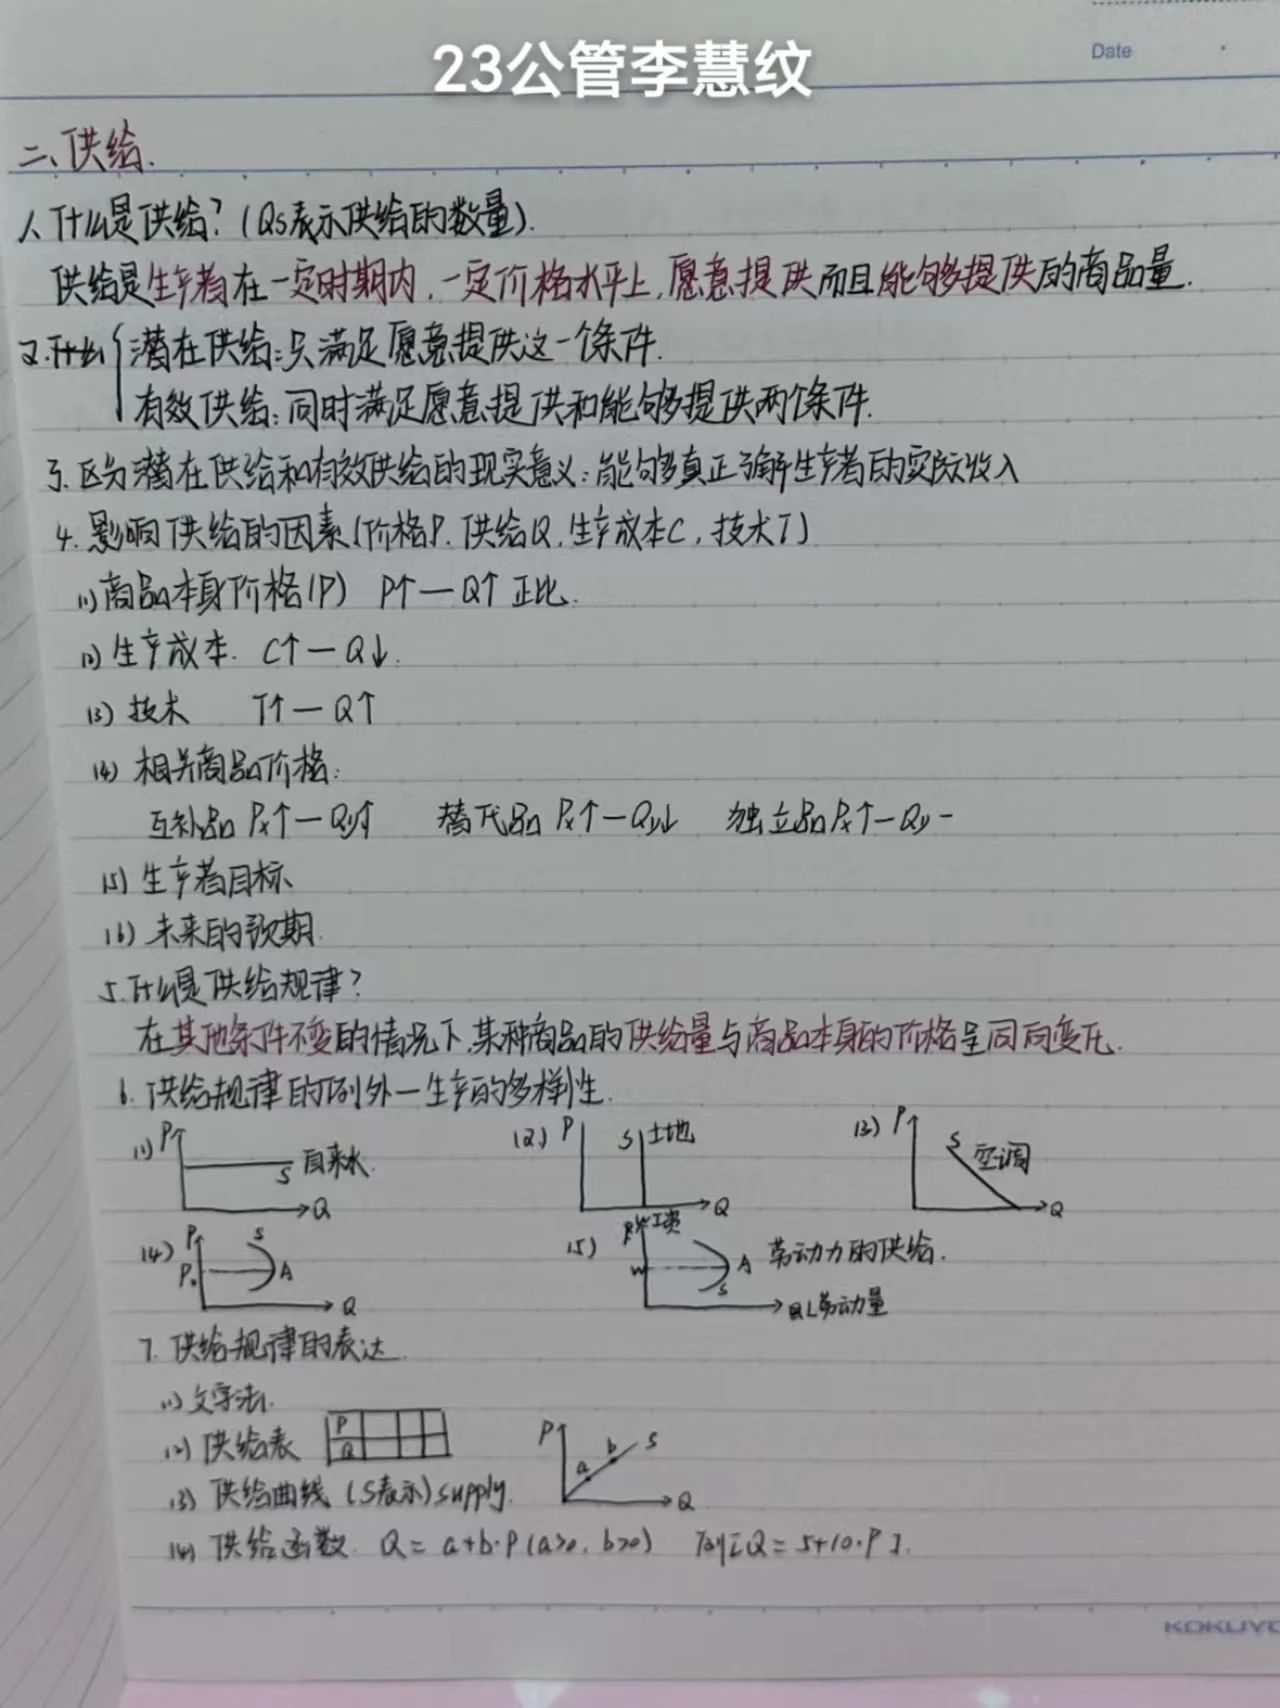 23公管李慧纹
Date
二、供给.
1.什么是供给？(Qs表示供给的数量).
供给是生产者在一定时期内,一定价格水平上,愿意提供而且能够提供的商品量.
2.什么 潜在供给:只满足愿意提供这一个条件.
有效供给:同时满足愿意提供和能够提供两个条件.
3.区分潜在供给和有效供给的现实意义:能够真正了解生产者的实际收入
4.影响供给的因素(价格P.供给Q.生产成本C,技术T)
(1)商品本身价格(P) P↑—Q↑ 正比.
(2)生产成本. C↑—Q↓.
(3)技术 T↑—Q↑
(4)相关商品价格:
互补品Px↑—Qy↑ 替代品Px↑—Qy↓ 独立品Px↑—Qy-
(5)生产者目标
(6)未来的预期.
5.什么是供给规律?
在其他条件不变的情况下,某种商品的供给量与商品本身的价格呈同向变化.
6.供给规律的例外—生产的多样性.
(1) P S 自来水. Q
(2) P S 土地 Q
(3) P S 空调 Q
(4) P P₀ S A Q
(5) 工资 W S A 劳动力的供给. QL劳动量
7.供给规律的表达
(1)文字法.
(2)供给表 P Q
(3)供给曲线 (S表示)supply.
P a b S Q
(4)供给函数. Q=a+b·P(a>0,b>0) Q=5+10·P].
KOKUYO